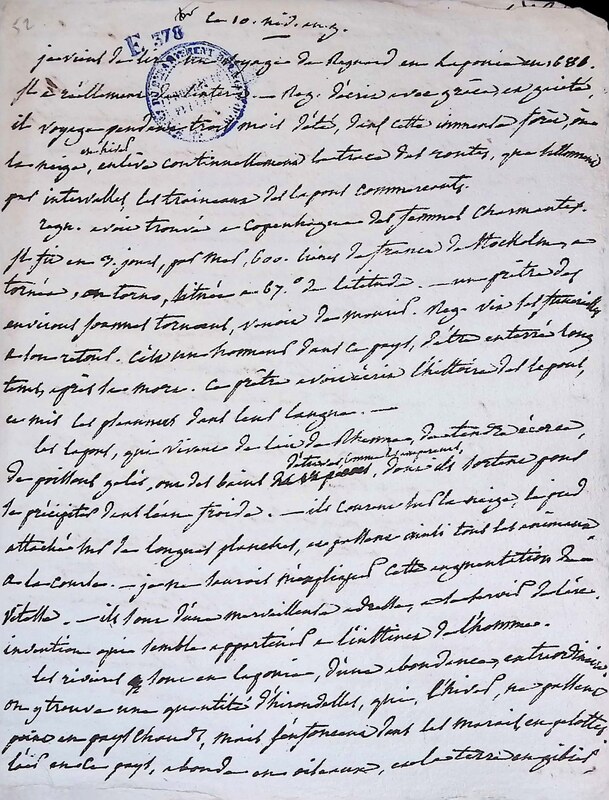 52
le 10. nid. an 9.
E 378
je viens de lire un voyage de Regnard en Laponie en 1681.
il a réellement de l'intérêt. — Reg. décrit avec grâce et gaieté,
il voyagea pendant trois mois d'été, dans cette immense forêt, où
la neige, en hiver enlève continuellement la trace des routes, que sillonnent
par intervalles, les traineaux des lapons commercants.
regn. avoit trouvé a Copenhague des femmes charmantes.
il fit en 3. jours, par mer, 600. lieues de france de Stockolm, a
tornéa, ou torno, située au 67.° de latitude. — un prêtre des
environs Joannes tornaeus, venoit de mourir. Reg. vit les funerailles
a son retour. C'est un honneur dans ce pays, d'être enterré long
tems, après sa mort. Ce prêtre avoit écrit l'histoire des lapons,
et mis les pseaumes dans leur langue. —
les lapons, qui vivent de lait de Rhenne, de tendre écorce,
de poissons gelés, ont des bains d'étuves comme les , dont ils sortent pour
se précipiter dans l'eau froide. — ils courent sur la neige, le pied
attaché sur de longues planches, et passent ainsi tous les animaux
a la course. — je ne saurois m'expliquer cette augmentation de
vîtesse. — ils sont d'une merveilleuse adresse, a se servir de l'arc.
invention qui semble appartenir a l'instinct de l'homme.
les rivières sont en laponie, d'une abondance, extraordinaire
on y trouve une quantité d'hirondelles, qui, l'hiver, ne passent
point en pays chauds, mais s'entonnent dans les marais en pelottes
l'air en ce pays, abonde en oiseaux, et la terre en gibier